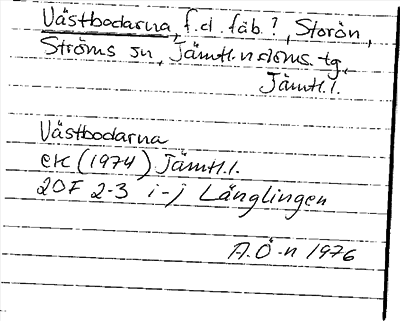 Västbodarna, f.d. fäb.?, Storön,
Ströms sn, Jämtl. n doms. tg,
Jämtl.l.
Västbodarna
ek (1974) Jämtl.l.
20F 2-3 i-j Länglingen
A.Ö-n 1976